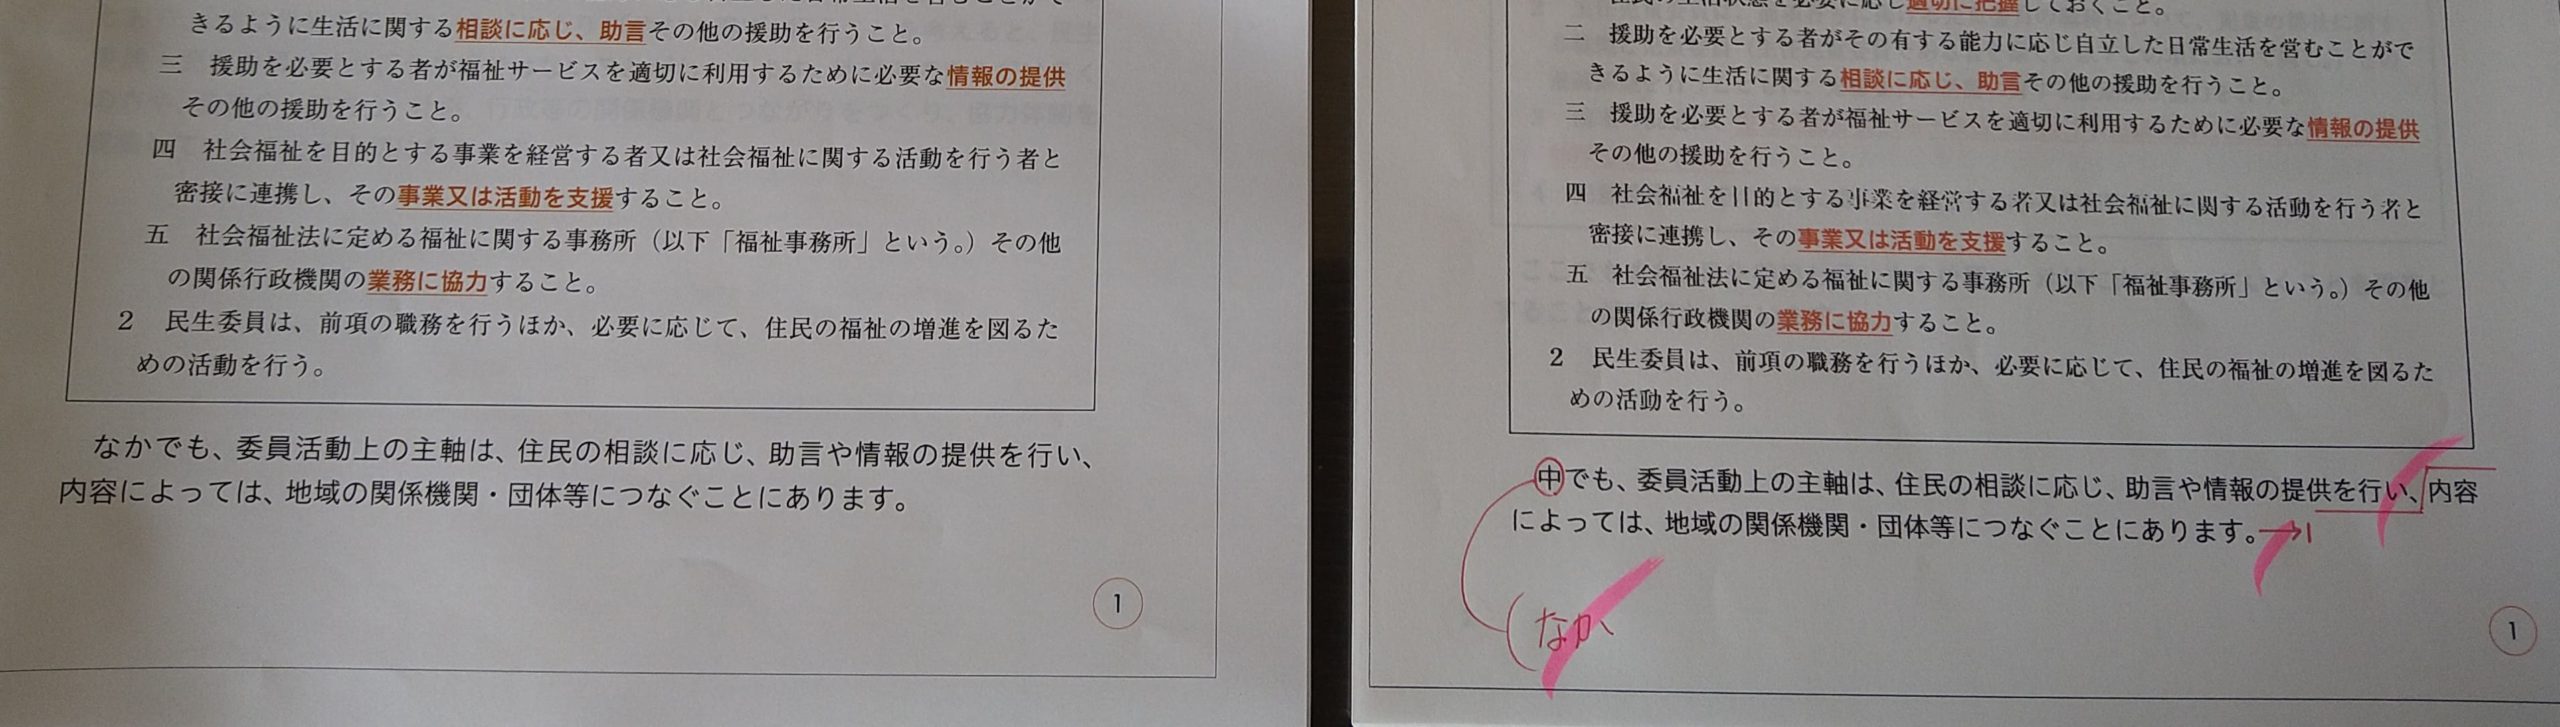 きるように生活に関する相談に応じ、助言その他の援助を行うこと。
三 援助を必要とする者が福祉サービスを適切に利用するために必要な情報の提供
その他の援助を行うこと。
四 社会福祉を目的とする事業を経営する者又は社会福祉に関する活動を行う者と
密接に連携し、その事業又は活動を支援すること。
五 社会福祉法に定める福祉に関する事務所(以下「福祉事務所」という。)その他
の関係行政機関の業務に協力すること。
2 民生委員は、前項の職務を行うほか、必要に応じて、住民の福祉の増進を図るた
めの活動を行う。
なかでも、委員活動上の主軸は、住民の相談に応じ、助言や情報の提供を行い、
内容によっては、地域の関係機関・団体等につなぐことにあります。
1
住民の生活状態を必要に応じ適切に把握しておくこと。
二 援助を必要とする者がその有する能力に応じ自立した日常生活を営むことがで
きるように生活に関する相談に応じ、助言その他の援助を行うこと。
三 援助を必要とする者が福祉サービスを適切に利用するために必要な情報の提供
その他の援助を行うこと。
四 社会福祉を目的とする事業を経営する者又は社会福祉に関する活動を行う者と
密接に連携し、その事業又は活動を支援すること。
五 社会福祉法に定める福祉に関する事務所(以下「福祉事務所」という。)その他
の関係行政機関の業務に協力すること。
2 民生委員は、前項の職務を行うほか、必要に応じて、住民の福祉の増進を図るた
めの活動を行う。
中でも、委員活動上の主軸は、住民の相談に応じ、助言や情報の提供を行い、内容
によっては、地域の関係機関・団体等につなぐことにあります。→1
なか
1